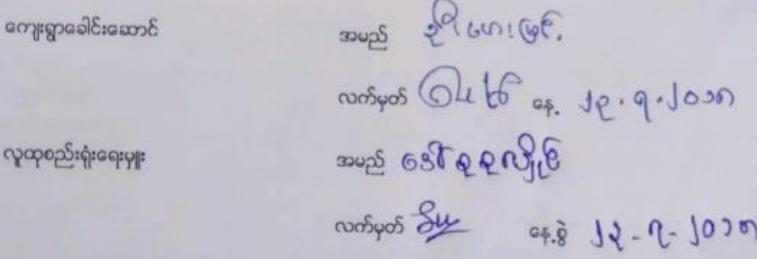 ကျေးရွာခေါင်းဆောင် အမည် ဦးဝှေးမြင့်
လက်မှတ် နေ့ ၂၉.၇.၂၀၁၈
လူထုစည်းရုံးရေးမှူး အမည် ဒေါ်နုနုလှိုင်
လက်မှတ် နေ့စွဲ ၂၃-၇-၂၀၁၈